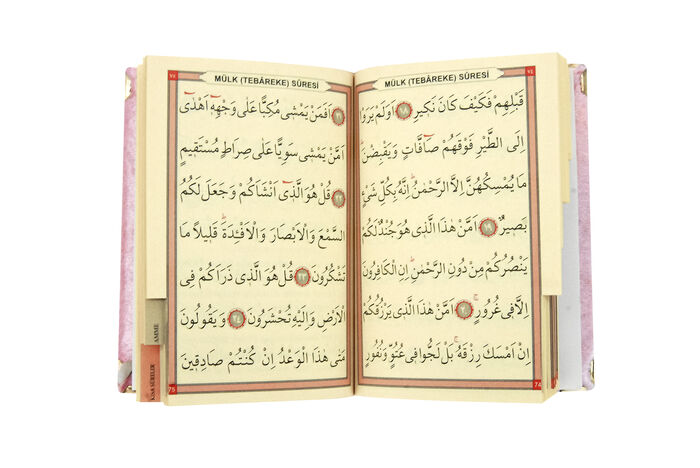 ٧٤
MÜLK (TEBÂREKE) SÛRESİ
قَبْلِهِمْ فَكَيْفَ كَانَ نَكِيرِ ﴿١٨﴾ اَوَلَمْ يَرَوْا
اِلَى الطَّيْرِ فَوْقَهُمْ صَٓافَّاتٍ وَيَقْبِضْنَ
مَا يُمْسِكُهُنَّ اِلَّا الرَّحْمٰنُ اِنَّهُ بِكُلِّ شَيْءٍ
بَصِيرٌ ﴿١٩﴾ اَمَّنْ هٰذَا الَّذِى هُوَ جُنْدٌ لَكُمْ
يَنْصُرُكُمْ مِنْ دُونِ الرَّحْمٰنِ اِنِ الْكَافِرُونَ
اِلَّا فِى غُرُورٍ ﴿٢٠﴾ اَمَّنْ هٰذَا الَّذِى يَرْزُقُكُمْ
اِنْ اَمْسَكَ رِزْقَهُ بَلْ لَجُّوا فِى عُتُوٍّ وَنُفُورٍ
74
٧٥
MÜLK (TEBÂREKE) SÛRESİ
﴿٢١﴾ اَفَمَنْ يَمْشِى مُكِبًّا عَلٰى وَجْهِهِٓ اَهْدٰٓى
اَمَّنْ يَمْشِى سَوِيًّا عَلٰى صِرَاطٍ مُسْتَقِيمٍ
﴿٢٢﴾ قُلْ هُوَ الَّذِٓى اَنْشَاَكُمْ وَجَعَلَ لَكُمُ
السَّمْعَ وَالْاَبْصَارَ وَالْاَفْـِٔدَةَ قَلِيلًا مَا
تَشْكُرُونَ ﴿٢٣﴾ قُلْ هُوَ الَّذِى ذَرَاَكُمْ فِى
الْاَرْضِ وَاِلَيْهِ تُحْشَرُونَ ﴿٢٤﴾ وَيَقُولُونَ
مَتٰى هٰذَا الْوَعْدُ اِنْ كُنْتُمْ صَادِقِينَ
75
AMME
KISA SÛRELER